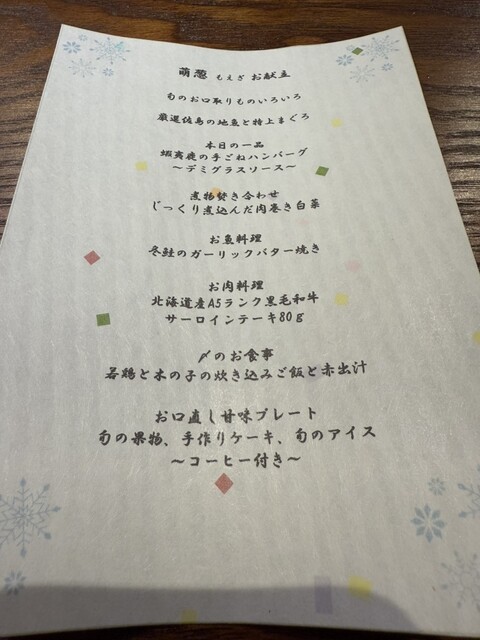 萌葱 もえぎ お献立
旬のお口取りものいろいろ
厳選佐島の地魚と特上まぐろ
本日の一品
蝦夷鹿の手ごねハンバーグ
～デミグラスソース～
煮物焚き合わせ
じっくり煮込んだ肉巻き白菜
お魚料理
冬鮭のガーリックバター焼き
お肉料理
北海道産A5ランク黒毛和牛
サーロインテーキ80g
〆のお食事
若鶏と木の子の炊き込みご飯と赤出汁
お口直し甘味プレート
旬の果物、手作りケーキ、旬のアイス
～コーヒー付き～